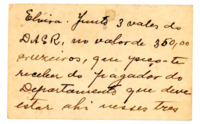 Elvira. Junto 3 vales do
DASR, no valor de 350,00
cruzeiros, que peço-te
receber do pagador do
Departamento que deve
estar ahi nesses tres